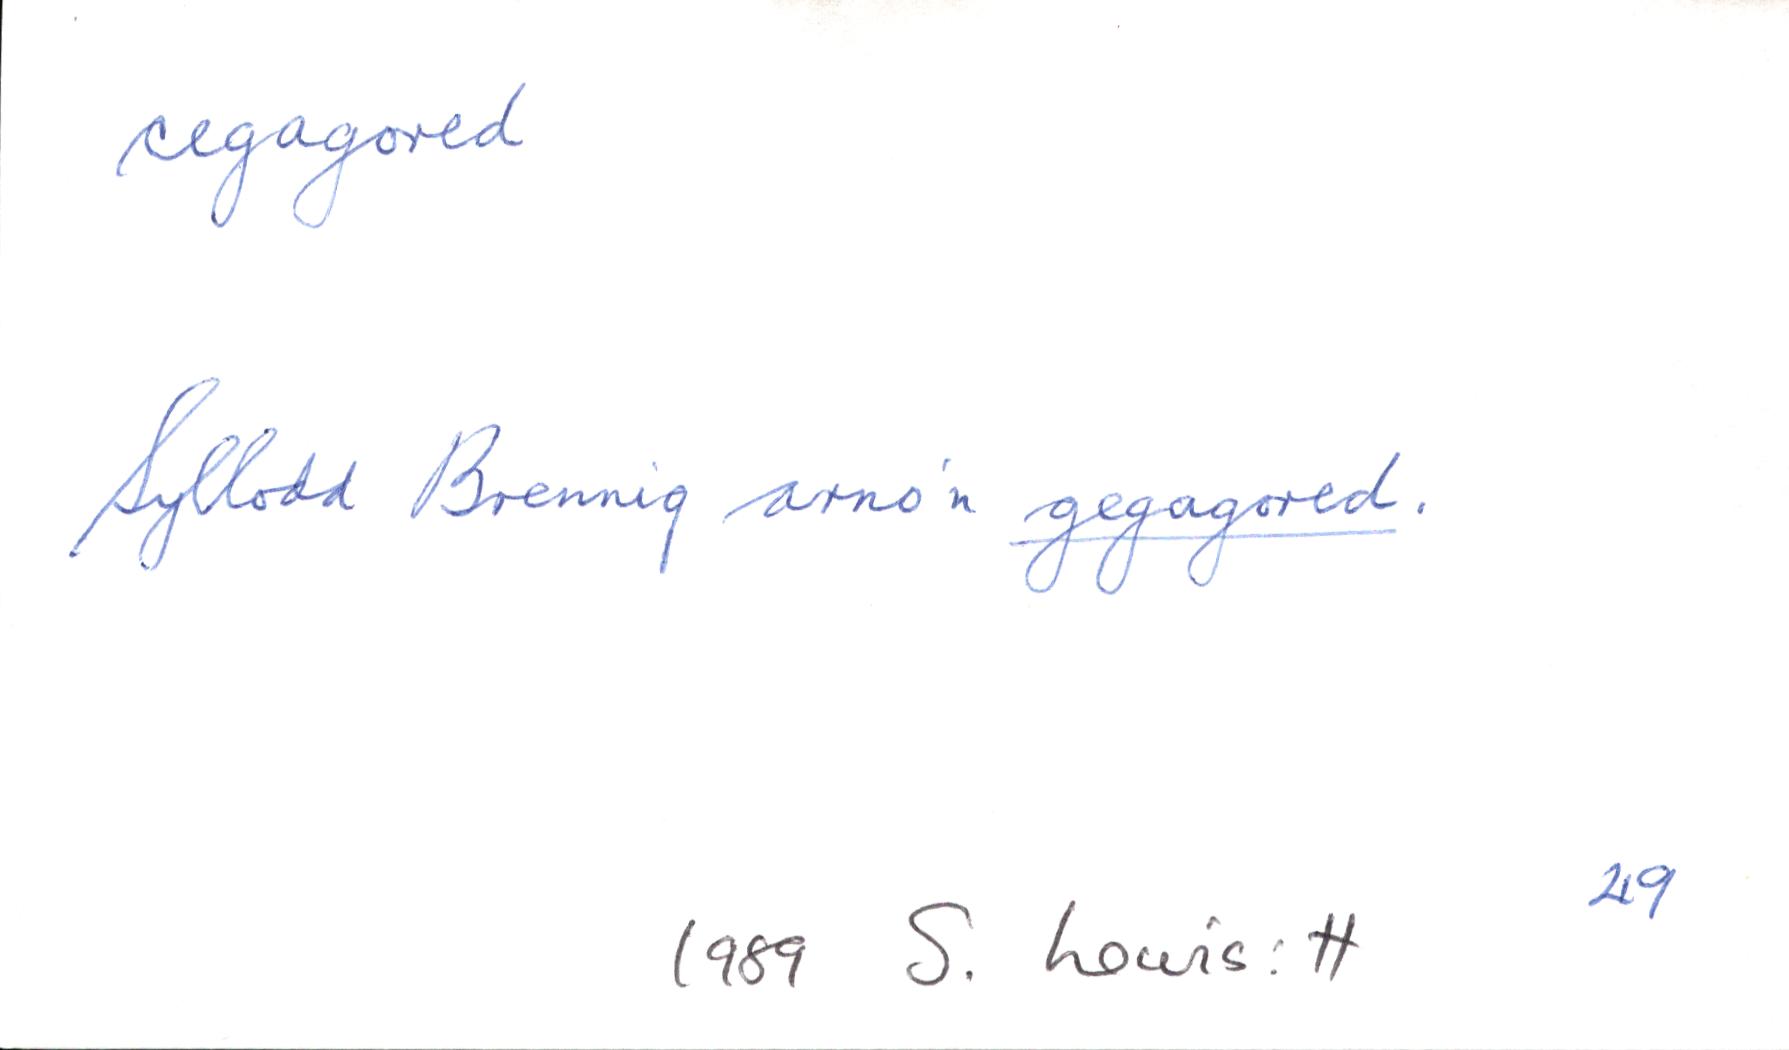 cegagored
Syllodd Brennig arno'n gegagored.
29
1989 S. Lewis: H